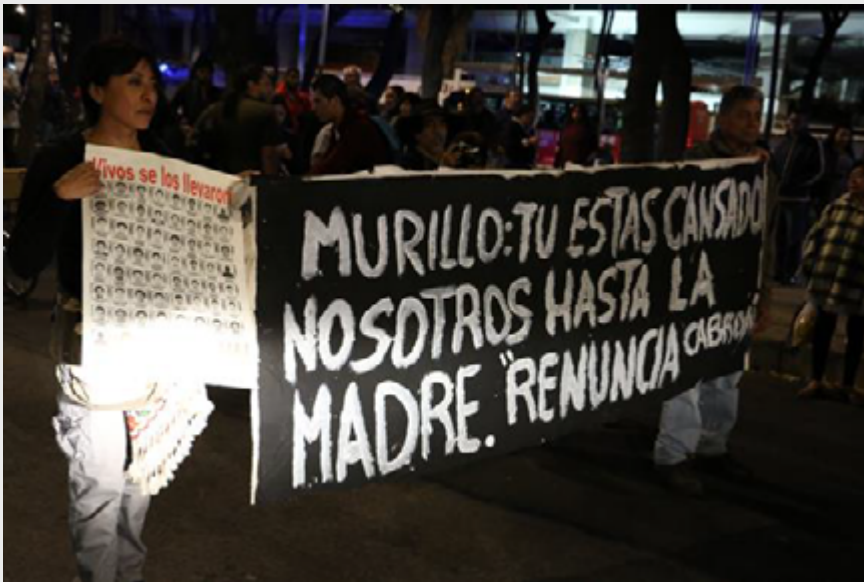 Vivos se los llevaron
MURILLO: TU ESTAS CANSADO
NOSOTROS HASTA LA
MADRE. "RENUNCIA CABRON